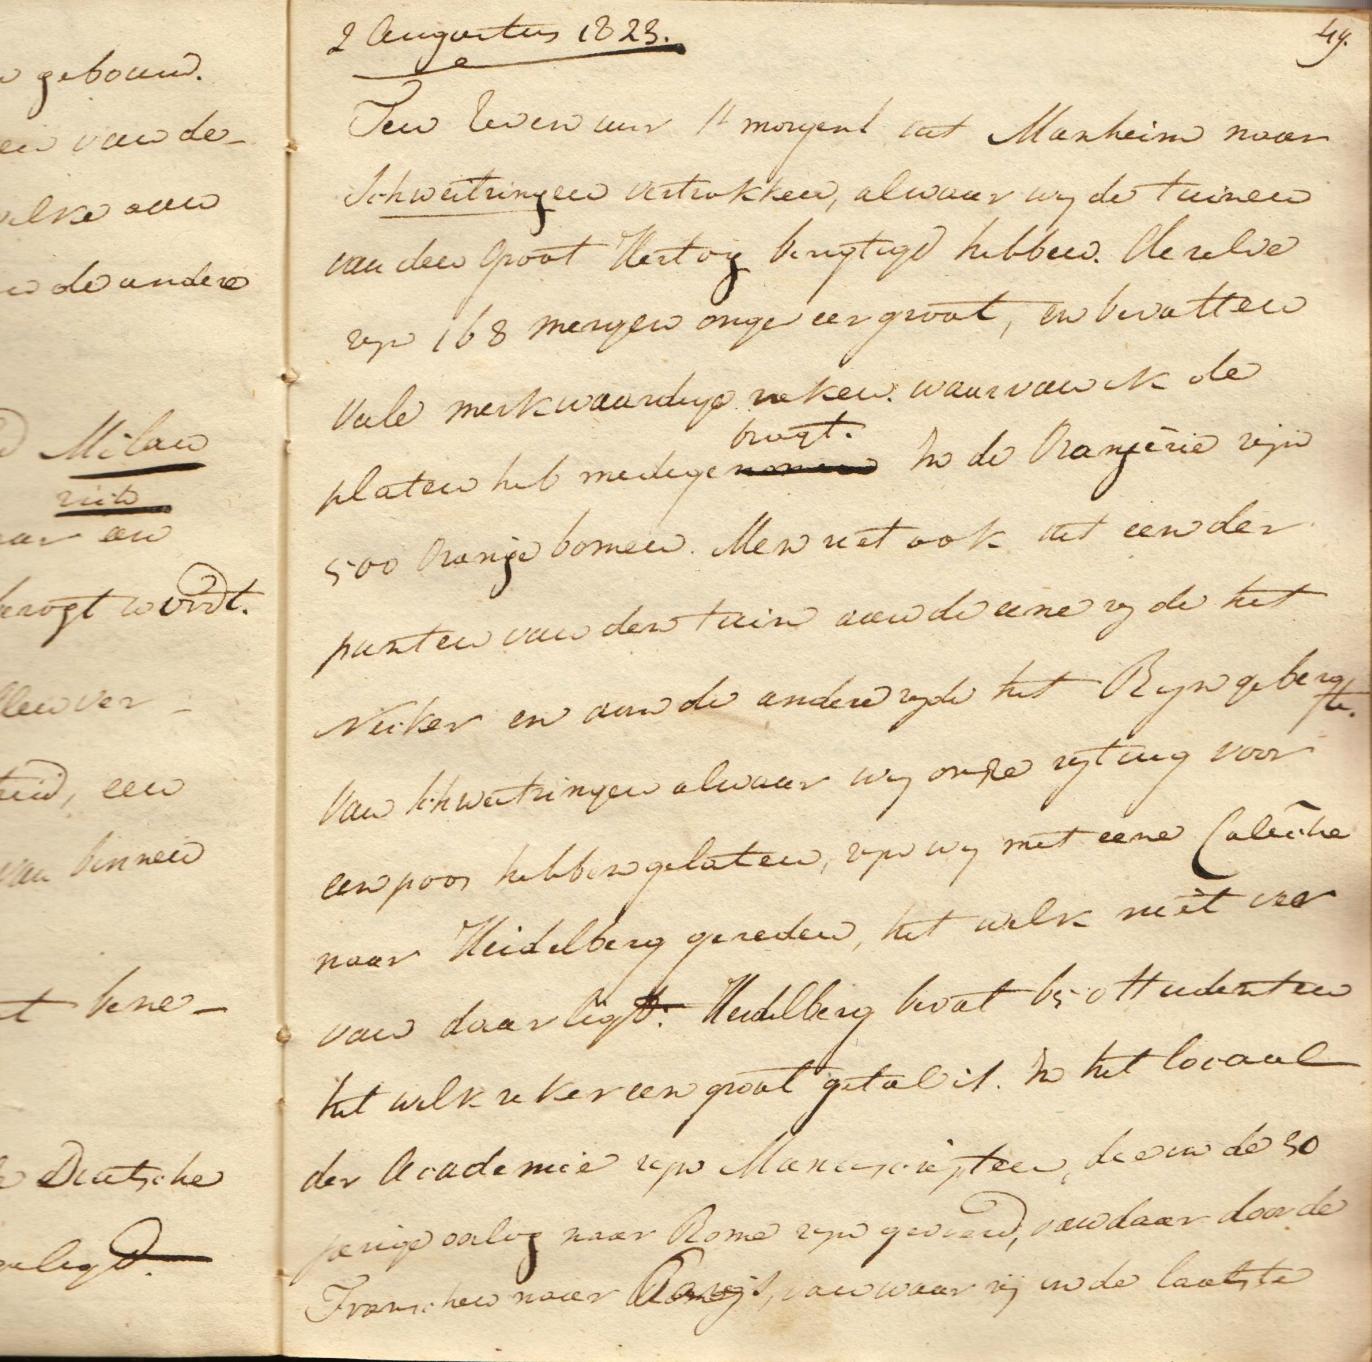 gebouw.
van de-
welke aan
de andere
Milaan
zich
aar en
bragt wordt.
ver-
heid, een
van binnen
bene-
Deutsche
gelegd.
2 Augustus 1823. 49.
Ten zeven uur 's morgens uit Manheim naar
Schwetzingen vertrokken, alwaar wy de tuinen
van den Groot Hertog bezigtigd hebben. dezelve
zyn 168 mergen ongeveer groot, en bevatten
vele merkwaardige zaken. waarvan ik de
bragt.
platen heb medegenomen In de Oranjerie zijn
500 Oranjebomen. Men ziet ook uit een der
punten van den tuin aan de eene zyde het
Necker en aan de andere zyde het Ryn geberg
te.
Van Schwetzingen alwaar wy onze rytuig voor
een poos hebben gelaten, zyn wy met eene Calèche
naar Heidelberg gereden, het welk niet ver
van daar ligt. Heidelberg bevat 650 studenten
het welk zeker een groot getal is. In het locaal
der Academie zyn Manuscripten, die in de 30
jarige oorlog naar Rome zyn gevoerd, van daar door de
Franschen naar Parijs, van waar zij in de laatste